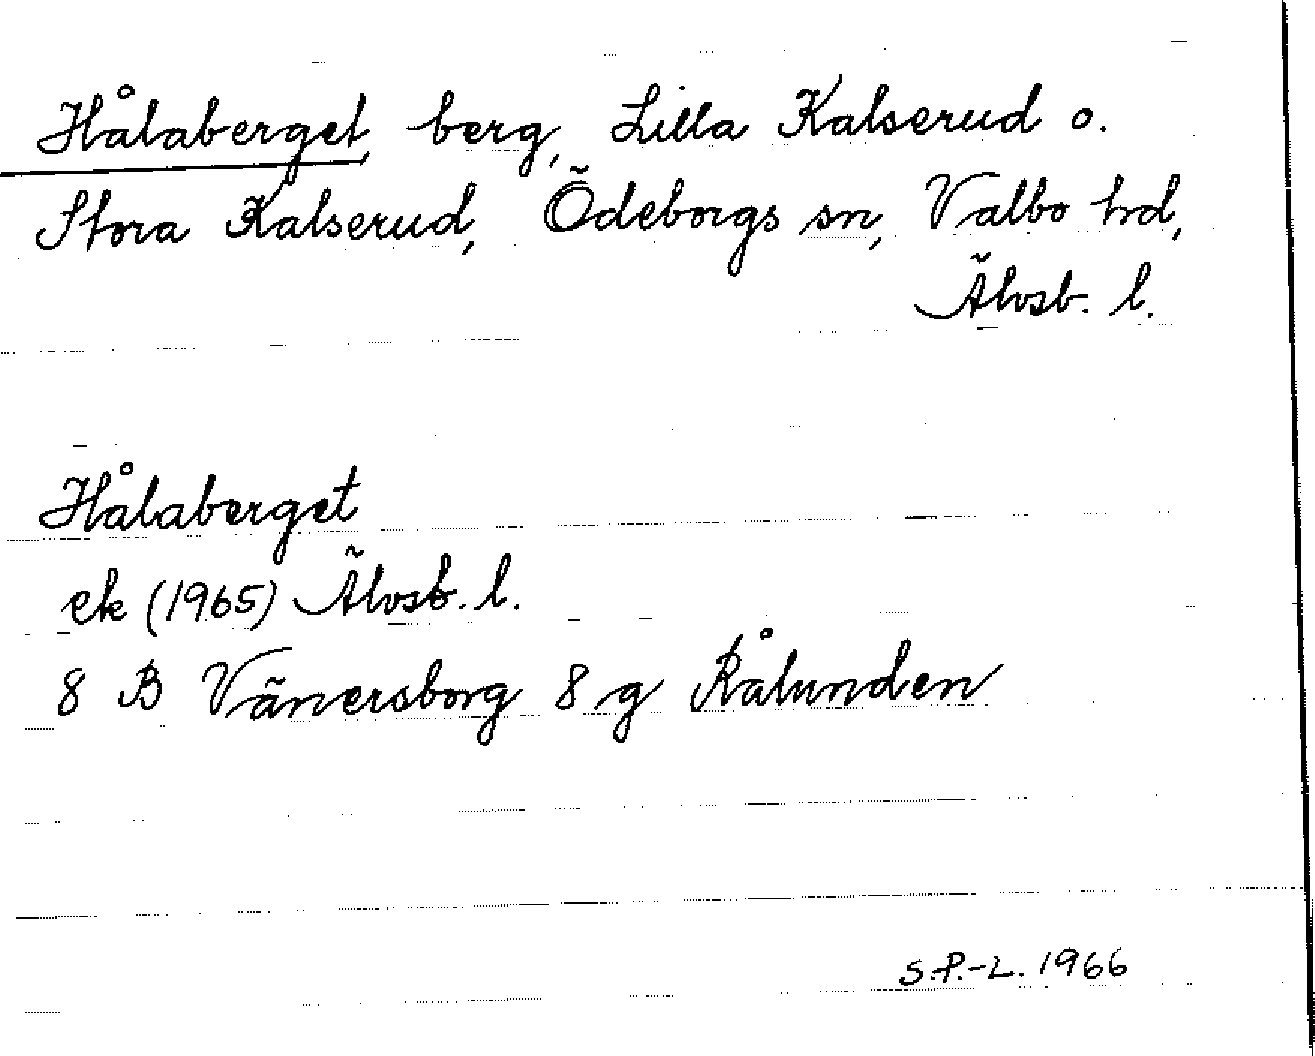 Hålaberget, berg, Lilla Kalserud o.
Stora Kalserud, Ödeborgs sn, Valbo hd,
Älvsb. l.
Hålaberget
ek (1965) Älvsb. l.
8 B Vänersborg 8 g Rålunden
S.P.-L. 1966